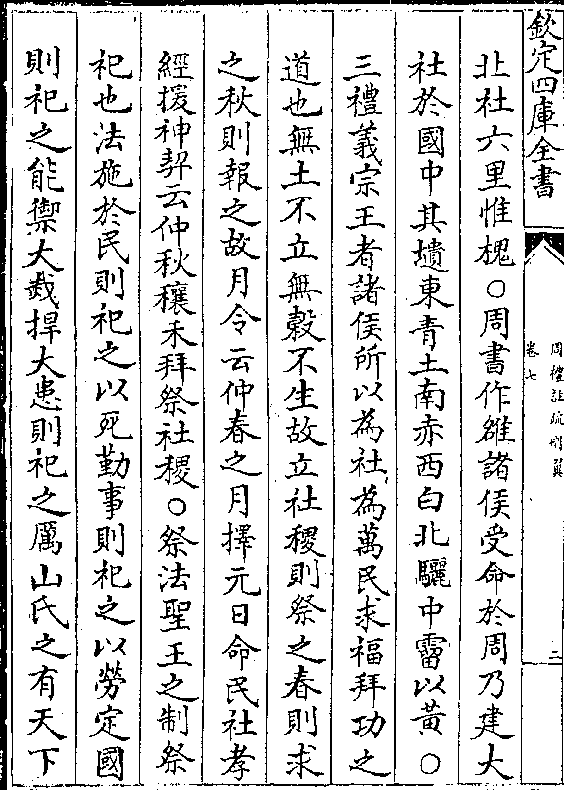 欽定四庫全書
周禮註疏刪翼
卷七
二
北社六里惟槐○周書作雒諸侯受命於周乃建大
社於國中其壝東青土南赤西白北驪中霤以黄○
三禮義宗王者諸侯所以為社為萬民求福拜功之
道也無土不立無穀不生故立社稷則祭之春則求
之秋則報之故月令云仲春之月擇元日命民社孝
經援神契云仲秋穰禾拜祭社稷○祭法聖王之制祭
祀也法施於民則祀之以死勤事則祀之以勞定國
則祀之能禦大烖捍大患則祀之厲山氏之有天下